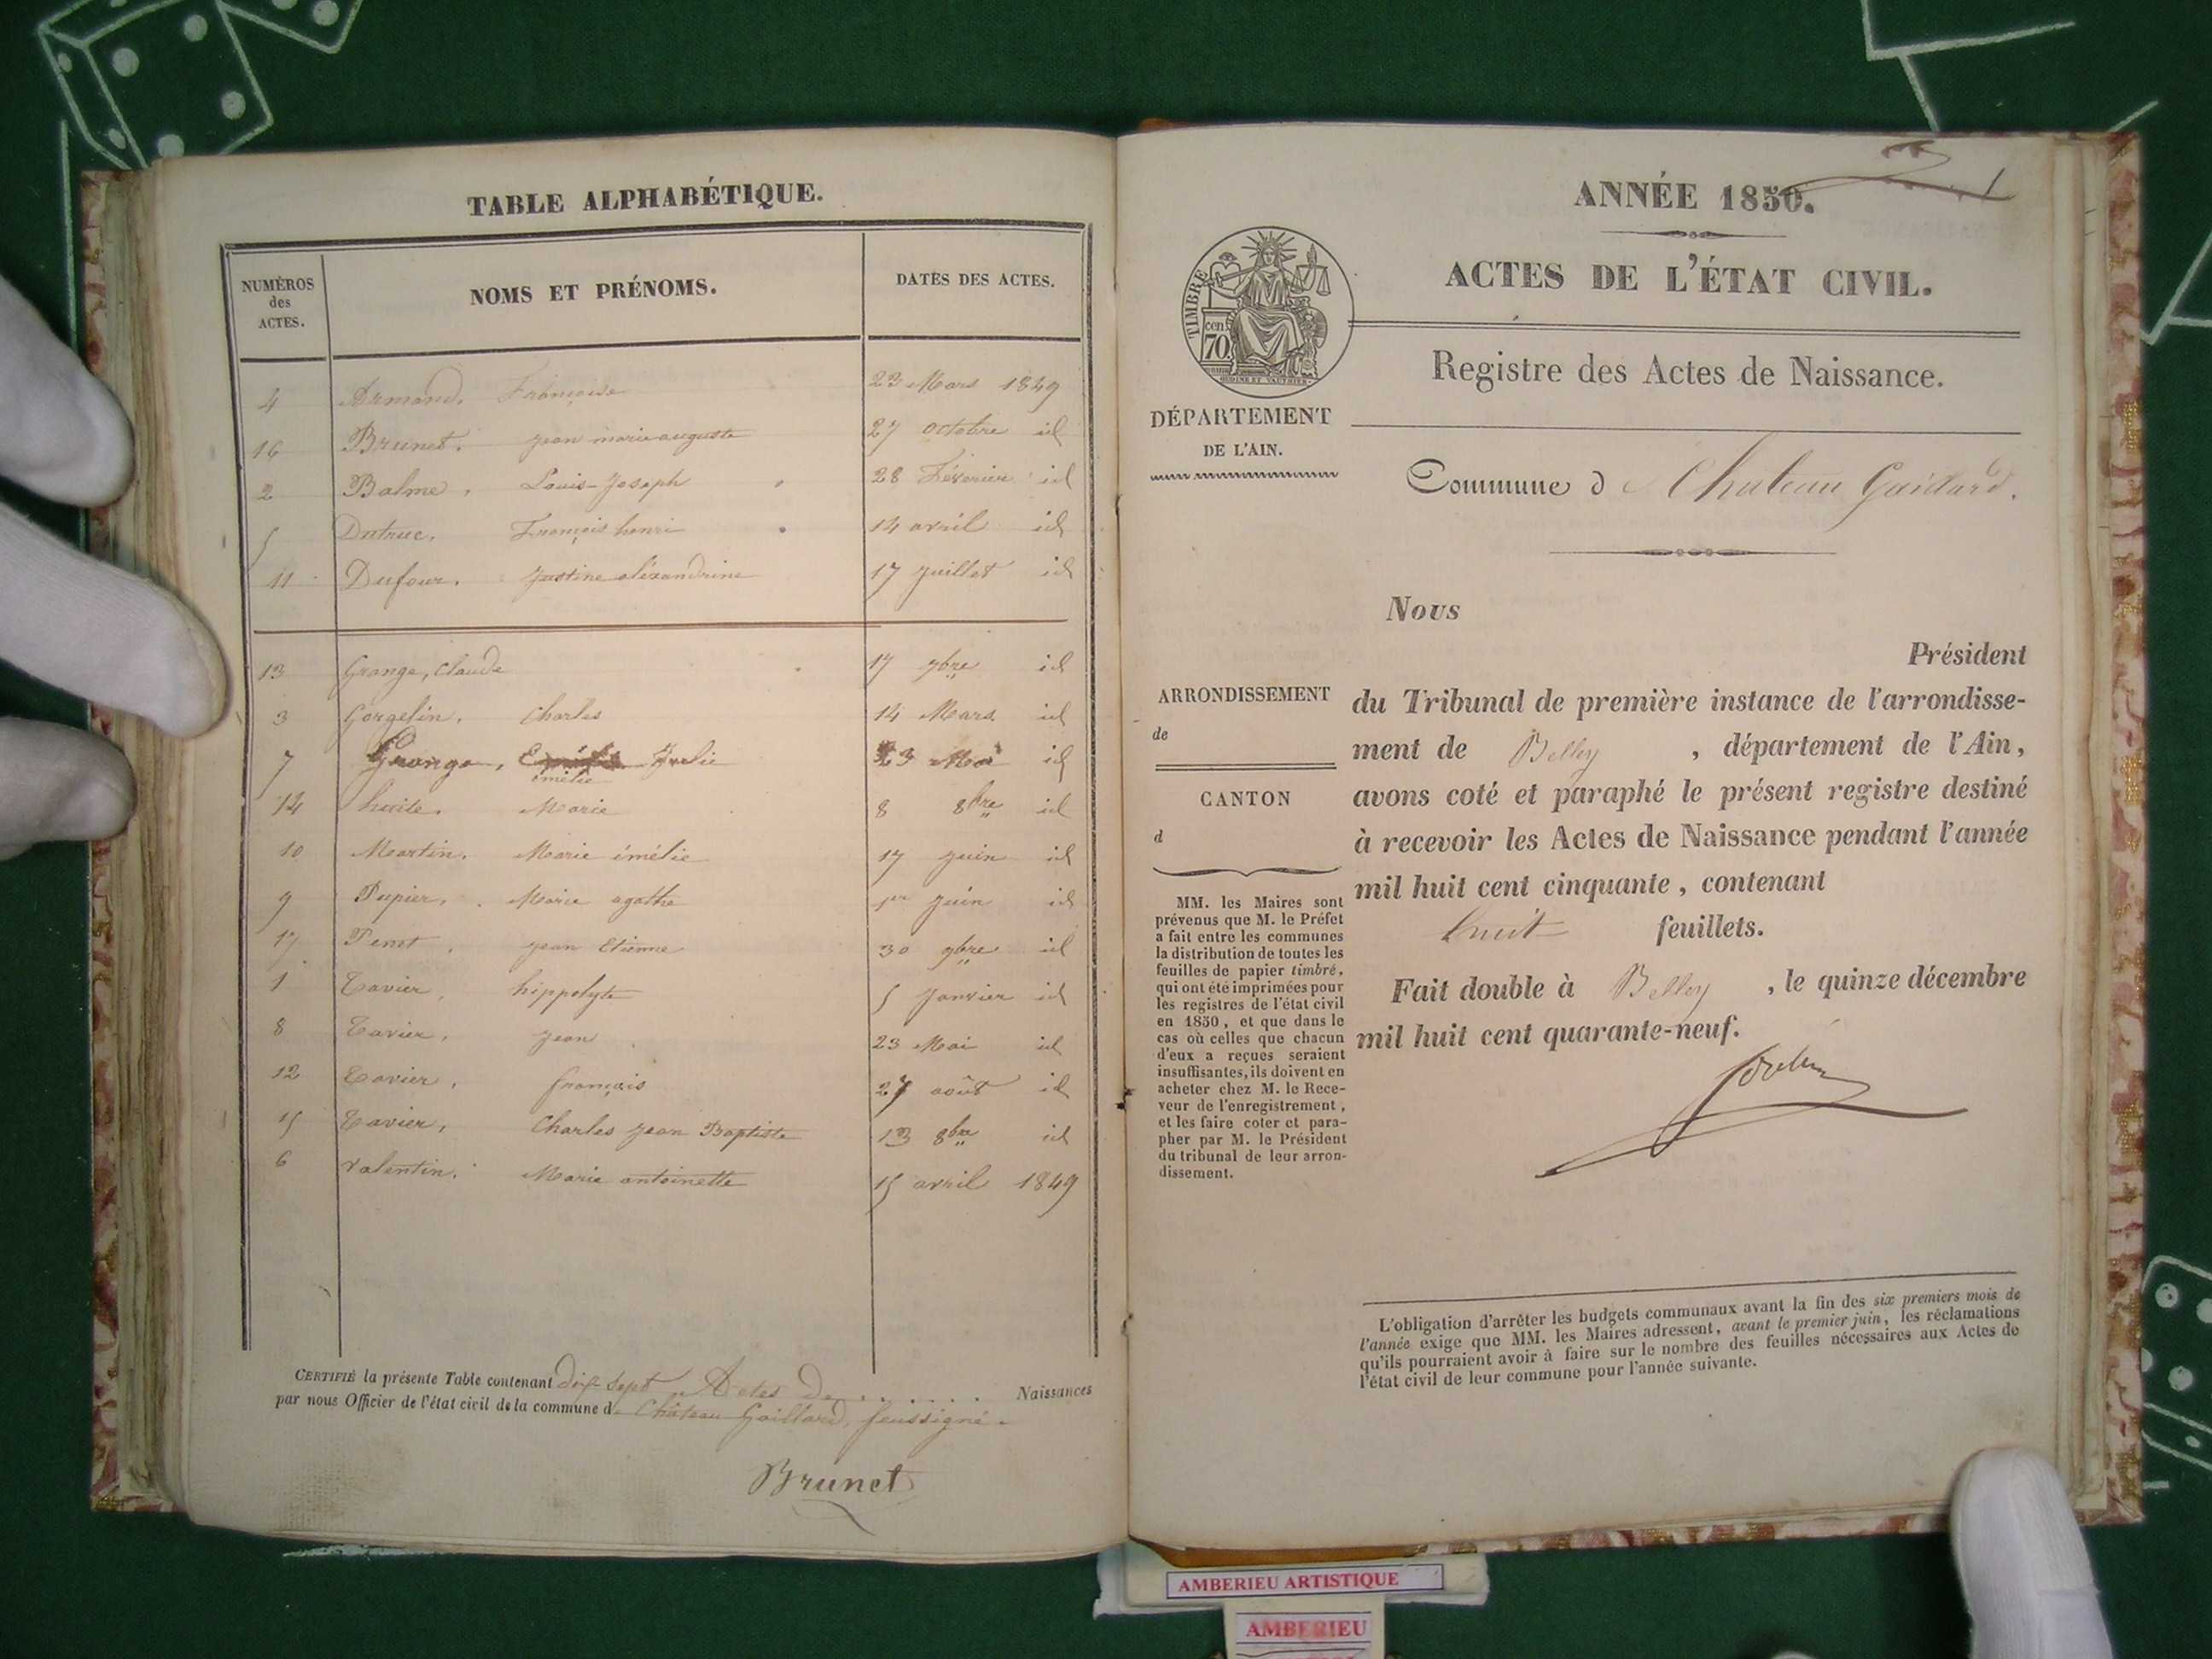 TABLE ALPHABÉTIQUE.
NUMÉROS des ACTES. NOMS ET PRÉNOMS. DATES DES ACTES.
4 Armand, Françoise 23 Mars 1849
16 Brunet, jean marie auguste 27 octobre id
2 Balme, Louis-Joseph 28 Février id
5 Dutruc, François henri 14 avril id
11 Dufour, justine aléxandrine 17 juillet id
13 Grange, Claude 17 7bre id
3 Gorgelin, Charles 14 Mars id
7 Grange, Julie 23 Mai id
émélie
14 huite, Marie 8 8bre id
10 Martin, Marie émélie 17 juin id
9 Pupier, Marie agathe 1er juin id
17 Penet, jean Etienne 30 9bre id
1 Tavier, hippolyte 5 janvier id
8 Tavier, jean 23 Mai id
12 Tavier, françois 27 août id
15 Tavier, Charles jean Baptiste 13 8bre id
6 Valentin, Marie antoinette 15 avril 1849
CERTIFIÉ la présente Table contenant dix sept Actes De . . . . . . Naissances
par nous Officier de l'état civil de la commune de Château Gaillard, soussigné.
Brunet
1
ANNÉE 1850.
ACTES DE L'ÉTAT CIVIL.
TIMBRE
cen.
70
Registre des Actes de Naissance.
DÉPARTEMENT
DE L'AIN.
Commune d Chateau Gaillard.
Nous
Président
ARRONDISSEMENT
de
CANTON
d
du Tribunal de première instance de l'arrondisse-
ment de Belley , département de l'Ain,
avons coté et paraphé le présent registre destiné
à recevoir les Actes de Naissance pendant l'année
mil huit cent cinquante, contenant
huit feuillets.
Fait double à Belley , le quinze décembre
mil huit cent quarante-neuf.
MM. les Maires sont
prévenus que M. le Préfet
a fait entre les communes
la distribution de toutes les
feuilles de papier timbré,
qui ont été imprimées pour
les registres de l'état civil
en 1850, et que dans le
cas où celles que chacun
d'eux a reçues seraient
insuffisantes, ils doivent en
acheter chez M. le Rece-
veur de l'enregistrement,
et les faire coter et para-
pher par M. le Président
du tribunal de leur arron-
dissement.
L'obligation d'arrêter les budgets communaux avant la fin des six premiers mois de
l'année exige que MM. les Maires adressent, avant le premier juin, les réclamations
qu'ils pourraient avoir à faire sur le nombre des feuilles nécessaires aux Actes de
l'état civil de leur commune pour l'année suivante.
AMBERIEU ARTISTIQUE
AMBERIEU